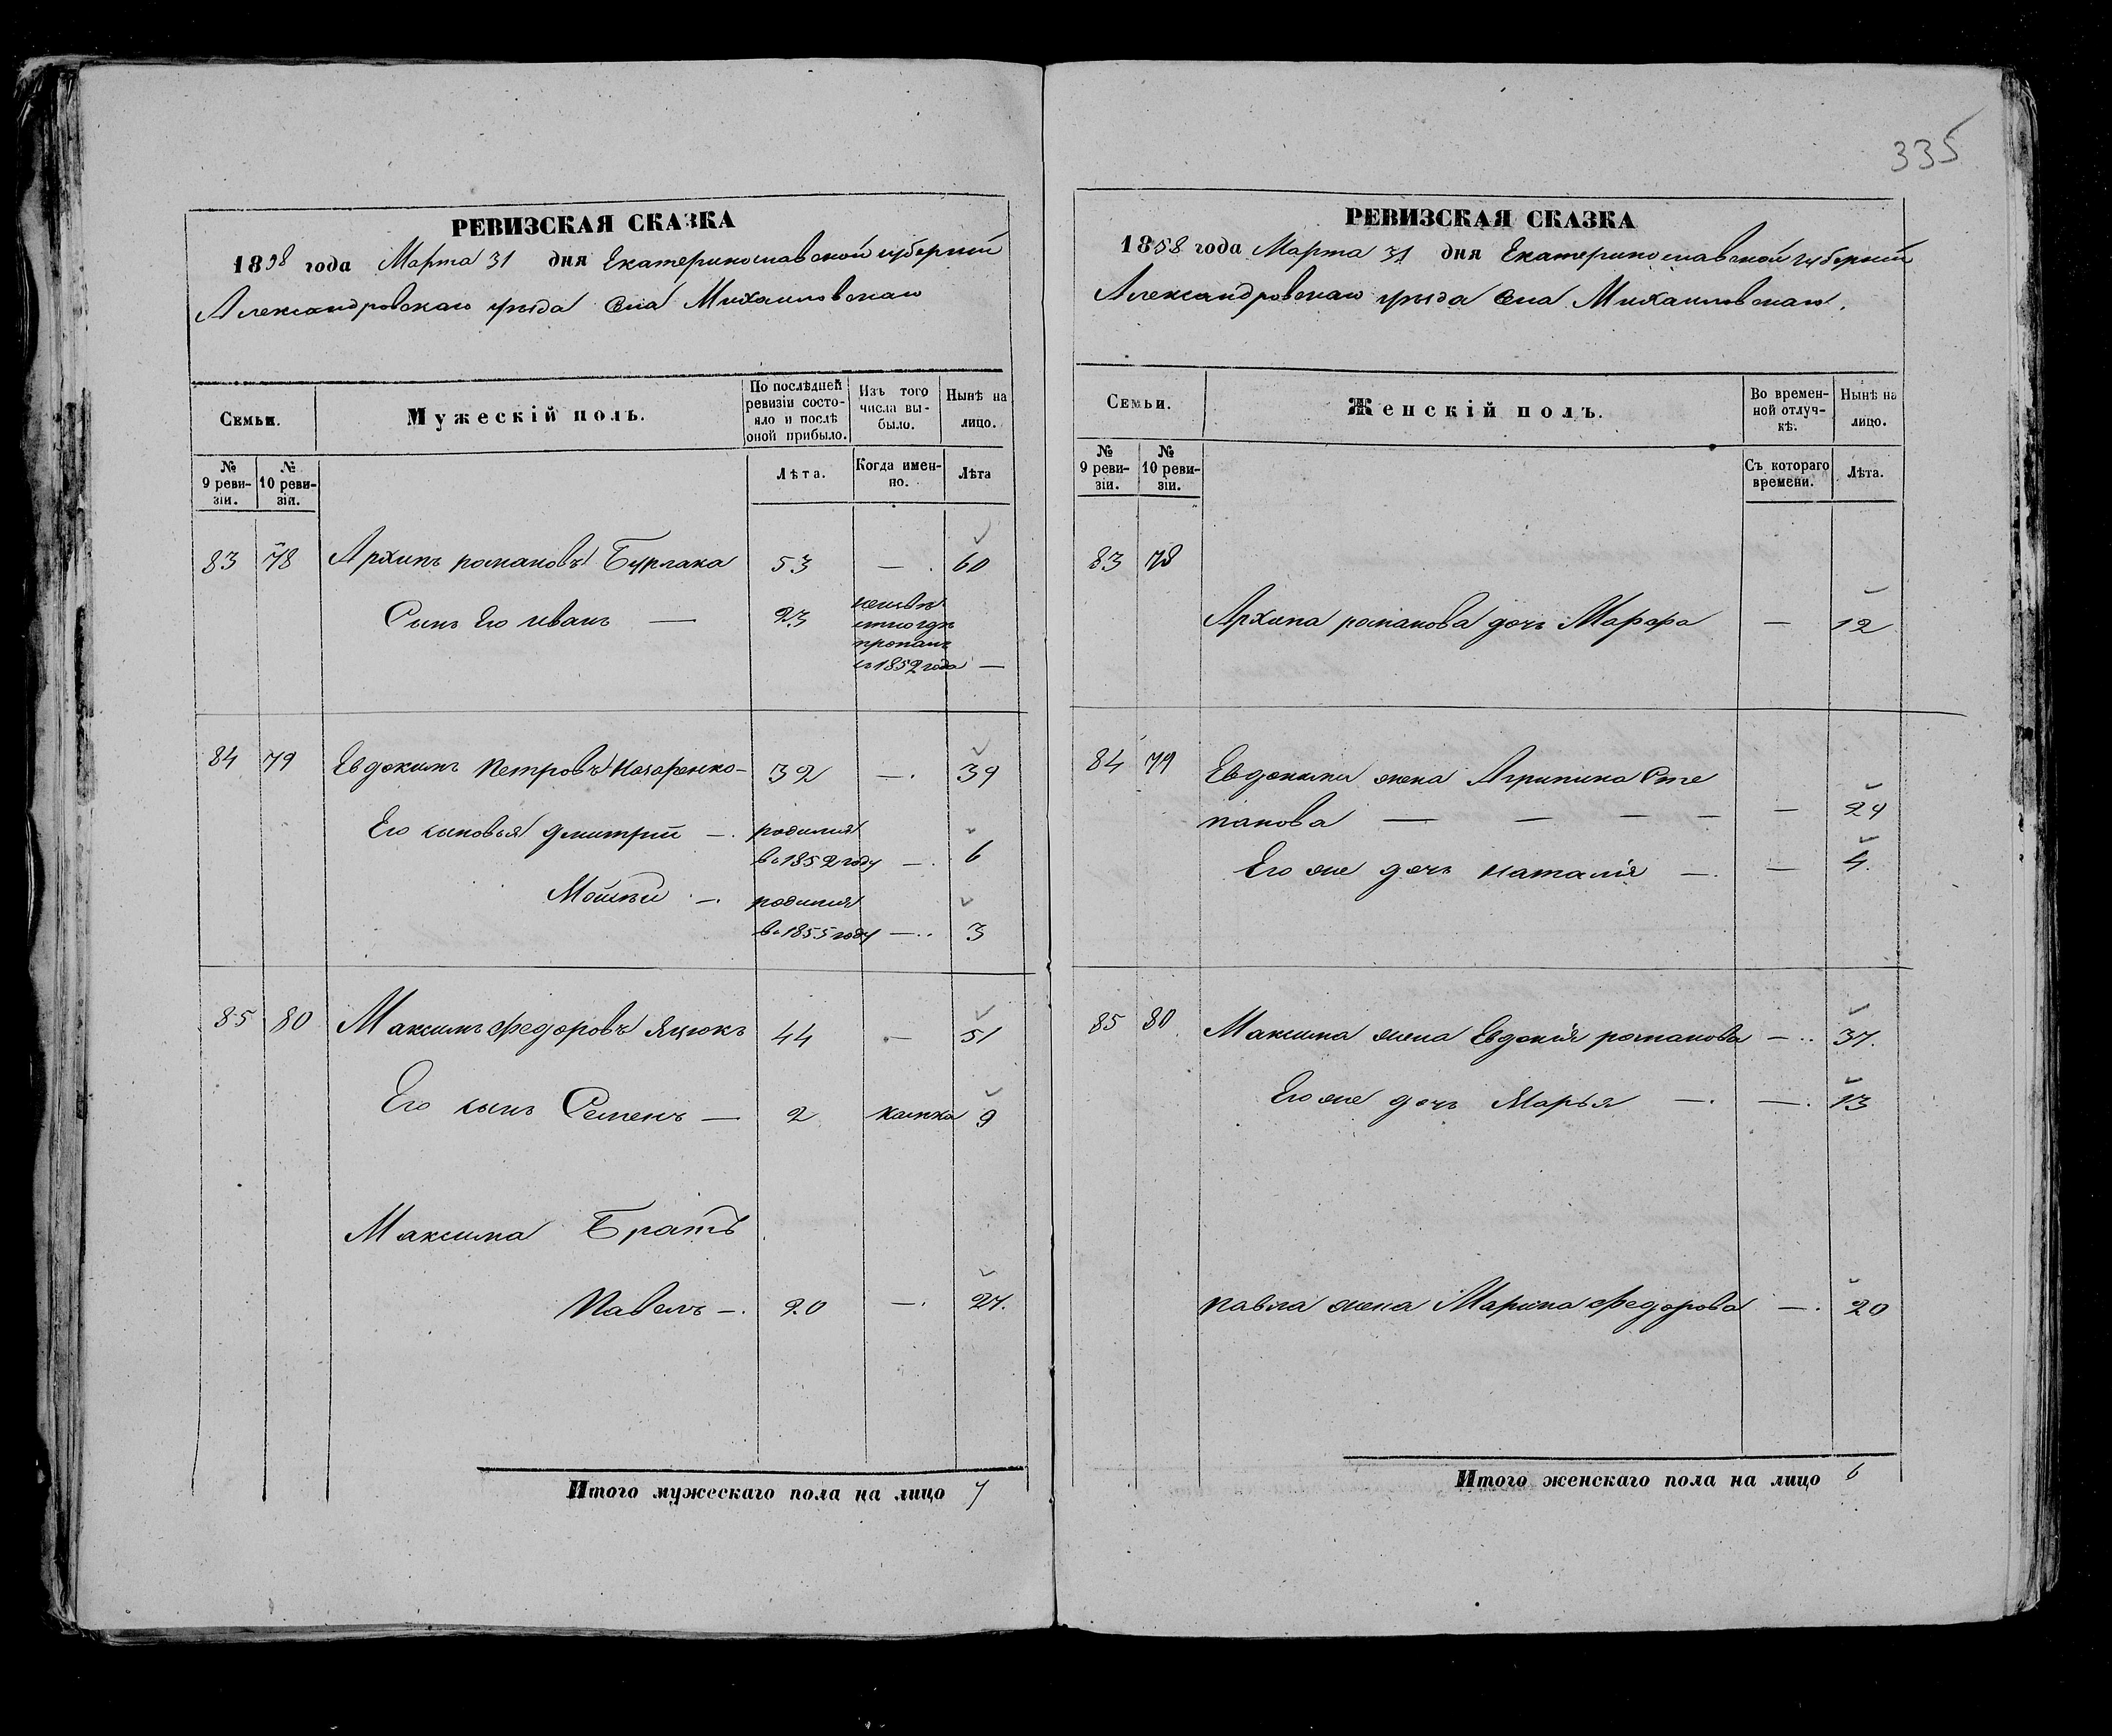 335
РЕВИЗСКАЯ СКАЗКА
1858 года Марта 31 дня Екатеринославской губернии
Александровскаго уѣзда Села Михайловскаго
Семьи.
Мужескій полъ.
По послѣдней ревизіи состояло и послѣ оной прибыло.
Изъ того числа выбыло.
Нынѣ на лицо.
№ 9 ревизіи.
№ 10 ревизіи.
Лѣта.
Когда именно.
Лѣта
83 78 Архипъ романовъ Бурлака 53 — 60
Сынъ Его иванъ — 23
пропалъ
съ 1852 года —
84 79 Евдокимъ Петровъ Назаренко — 32 — 39
Его сыновья дмитрий — родился
въ 1852 году — 6
Мойсѣй — родился
въ 1855 году — 3
85 80 Максимъ Федоровъ Яцюкъ 44 — 51
Его сынъ Семенъ — 2 9
Максима Братъ
Павелъ — 20 — 27.
Итого мужескаго пола на лицо 7
РЕВИЗСКАЯ СКАЗКА
1858 года Марта 31 дня Екатеринославской губернии
Александровскаго уѣзда Села Михайловскаго.
Семьи.
Женскій полъ.
Во временной отлучкѣ.
Нынѣ на лицо.
№ 9 ревизіи.
№ 10 ревизіи.
Съ котораго времени.
Лѣта.
83 78
Архипа романова дочь Марфа — 12
84 79 Евдокима жена Агрипина Сте
панова — — — — — 29
Его же дочь наталія — — 4.
85 80 Максима жена Евдокія романова — 37.
Его же дочь Марья — — 13
павла жена Марина Федорова — 20
Итого женскаго пола на лицо 6